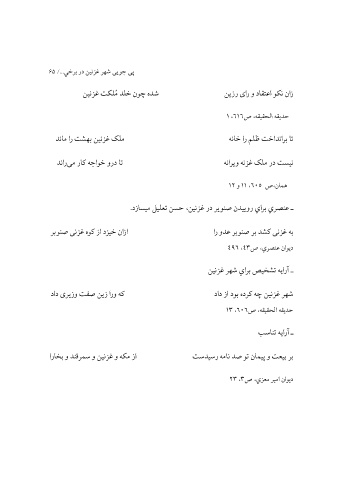 پی جویی شهر غزنین در برخي.../ ۶۵
زان نکو اعتقاد و رای رزین شده چون خلد مُلکت غزنین
حدیقه الحقیقه، ص۶۱۶، ۱
تا برانداخت ظلم را خانه ملک غزنین بهشت را ماند
نیست در ملک غزنه ویرانه تا درو خواجه کار می‌راند
همان،ص ۶۰۵، ۱۱ و ۱۲
ـ عنصري براي روییدن صنوبر در غزنین، حسن تعلیل میسازد.
به غزنی کشد بر صنوبر عدو را ازان خیزد از کوه غزنی صنوبر
دیوان عنصری، ص۴۳، ۴۹۶
ـ آرایه تشخیص براي شهر غزنین
شهر غزنین چه کرده بود از داد که ورا زین صفت وزیری داد
حدیقه الحقیقه، ص۶۰۶، ۱۳
ـ آرایه تناسب
بر بیعت و پیمان تو صد نامه رسیدست از مکه و غزنین و سمرقند و بخارا
دیوان امیر معزي، ص۳، ۲۳